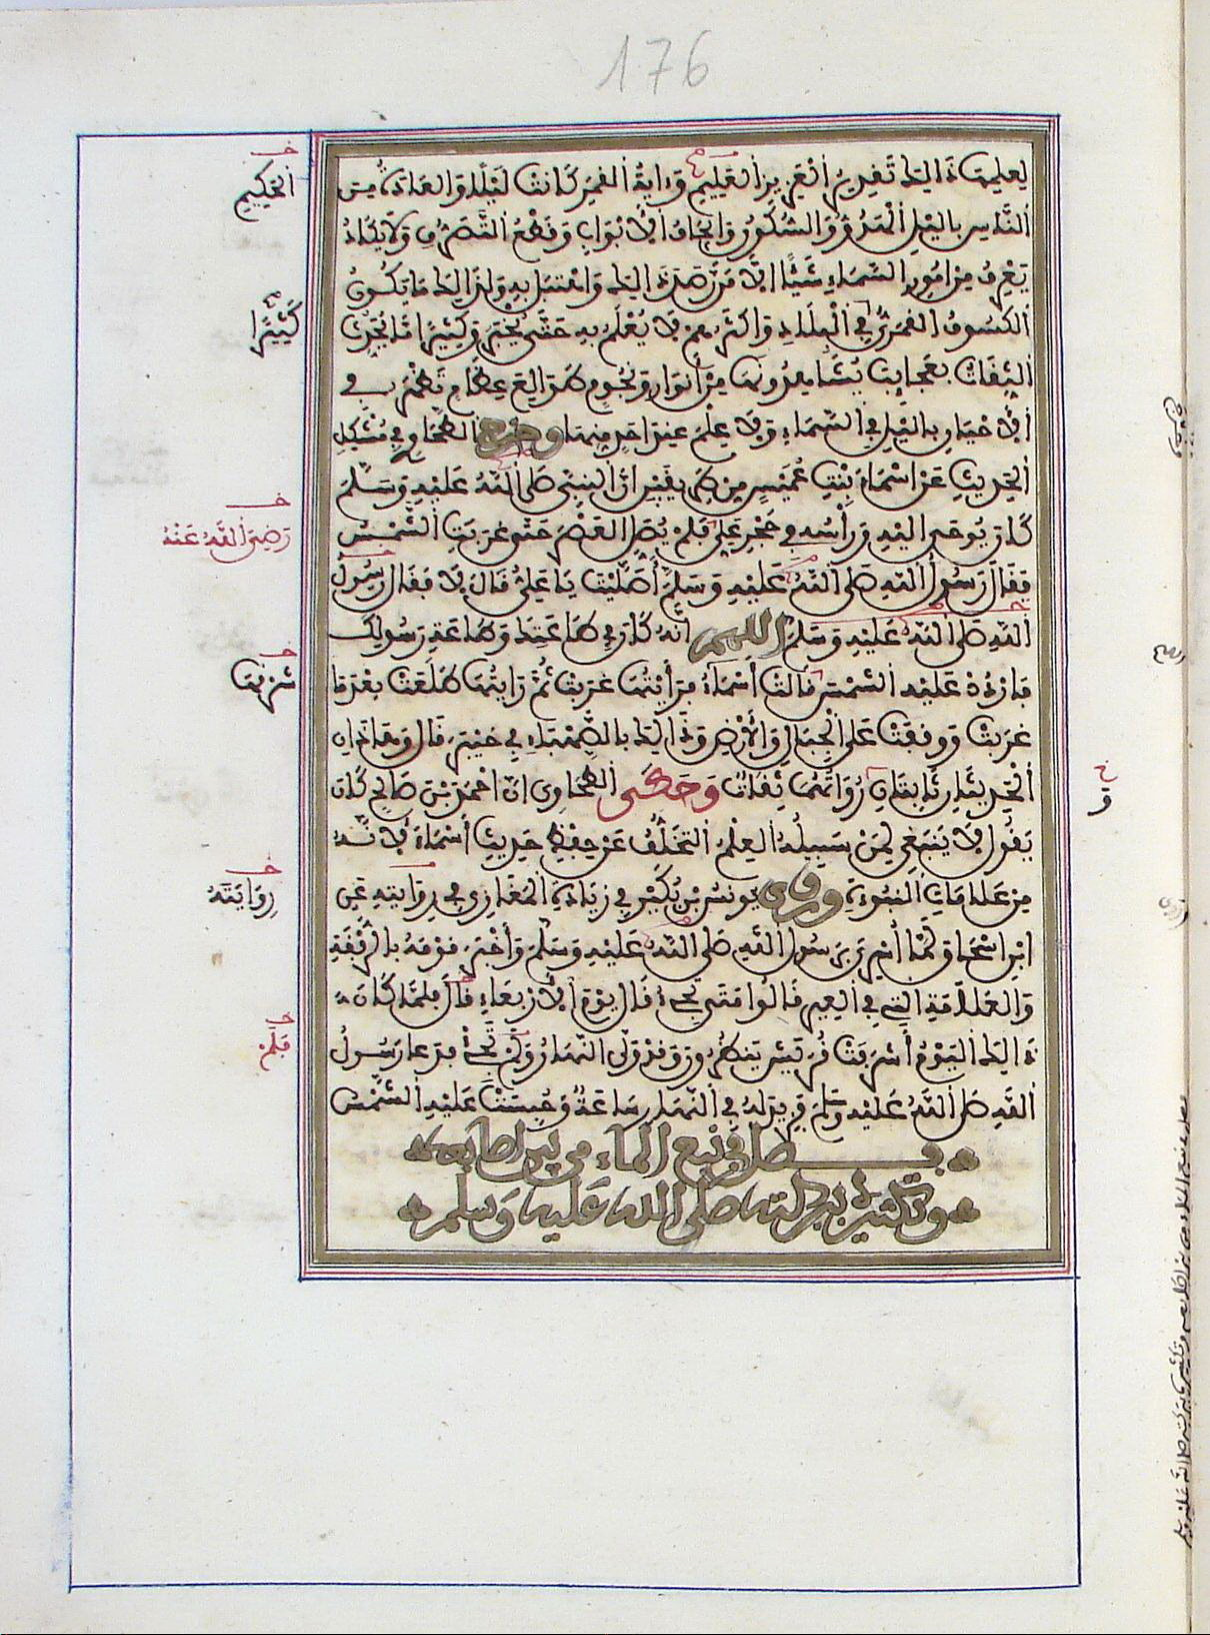 176
لعلمها ذَالِكَ تَقْدِيرُ الْعَزِيزِ الْعَلِيمِ وَءَايَةُ الْقَمَرِ كَانَتْ لَيْلًا وَالعَادَةُ مِنَ
النَّاسِ بِاللَّيْلِ الْهُدُوُّ وَالسُّكُونُ وَإِيجَافُ الْأَبْوَابِ وَقَطْعُ التَّصَرُّفِ وَلَا يَكَادُ
يَعْرِفُ مِنْ امُورِ السَّمَاءِ شَيْئًا إِلَّا مَنْ رَصَدَ ذَالِكَ وَاهْتَبَلَ بِهِ وَلِذَالِكَ مَا يَكُونُ
الكُسُوفُ القَمَرِيُّ فِي الْبِلَادِ وَاكْثَرُهُمْ لَا يَعْلَمُ بِهِ حَتَّى يُخْبَرَ وَكَثِيرًا مَّا يُحَدِّثُ
الثِّقَاتُ بِعَجَائِبَ يُشَاهِدُونَهَا مِنْ أَنْوَارٍ وَنُجُومٍ طَوَالِعَ عِظَامٍ تَظْهَرُ فِي
الْأَحْيَانِ بِاللَّيْلِ فِي السَّمَاءِ وَلَا عِلْمَ عِنْدَ احَدٍ مِنْهَا وخرج الطَّحَاوِي فِي مُشْكِلِ
الْحَدِيثِ عَنْ اسْمَاءَ بِنْتِ عُمَيْسٍ مِنْ طَرِيقَيْنِ انَّ النَّبِيَّ صَلَّى اللَّهُ عَلَيْهِ وَسَلَّمَ
كَانَ يُوحَى الَيْهِ وَرَأْسُهُ فِي حَجْرِ عَلِيٍّ فَلَمْ يُصَلِّ العَصْرَ حَتَّى غَرَبَتِ الشَّمْسُ
فَقَالَ رَسُولُ اللَّهِ صَلَّى اللَّهُ عَلَيْهِ وَسَلَّمَ أَصَلَّيْتَ يَا عَلِيُّ قَالَ لَا فَقَالَ رَسُولُ
اللَّهِ صَلَّى اللَّهُ عَلَيْهِ وَسَلَّمَ اللهم انَّهُ كَانَ فِي طَاعَتِكَ وَطَاعَةِ رَسُولِكَ
فَارْدُدْ عَلَيْهِ الشَّمْسَ قَالَتْ أَسْمَاءُ فَرَأَيْتُهَا غَرَبَتْ ثُمَّ رَايْتُهَا طَلَعَتْ بَعْدَ مَا
غَرَبَتْ وَوَقَفَتْ عَلَى الْجِبَالِ وَالْأَرْضِ وَذَالِكَ بِالصَّهْبَاءِ فِي خَيْبَرَ قَالَ وَهَاذَانِ
الْحَدِيثَانِ ثَابِتَانِ رُوَاتُهُمَا ثِقَاتٌ وَحَكَى الطَّحَاوِي انَّ احْمَدَ بْنَ صَالِحٍ كَانَ
يَقُولُ لَا يَنْبَغِي لِمَنْ سَبِيلُهُ العِلْمُ التَّخَلُّفُ عَنْ حِفْظِ حَدِيثِ أَسْمَاءَ لِأَنَّهُ
مِنْ عَلَامَاتِ النُّبُوءَةِ وروى يُونُسُ بْنُ بُكَيْرٍ فِي زِيَادَةِ الْمَغَازِي فِي رِوَايَتِهِ عَنِ
ابْنِ اسْحَاقَ لَمَّا أُسْرِيَ بِرَسُولِ اللَّهِ صَلَّى اللَّهُ عَلَيْهِ وَسَلَّمَ وَأَخْبَرَ قَوْمَهُ بِالرُّفْقَةِ
وَالعَلَامَةِ الَّتِي فِي العِيرِ قَالُوا مَتَى تَجِيءُ قَالَ يَوْمَ الْأَرْبِعَاءِ قَالَ فَلَمَّا كَانَ
ذَالِكَ الْيَوْمُ أَشْرَفَتْ قُرَيْشٌ يَنْظُرُونَ وَقَدْ وَلَّى النَّهَارُ وَلَمْ تَجِيءْ فَدَعَا رَسُولُ
اللَّهِ صَلَّى اللَّهُ عَلَيْهِ وَسَلَّمَ فَزِيدَ لَهُ فِي النَّهَارِ سَاعَةٌ وَحُبِسَتْ عَلَيْهِ الشَّمْسُ
فصل في نبع الماء من بين اصابعه
وتكثيره ببركته صلى الله عليه وسلم
الْحَكِيمِ
كَثِيرًا
رَضِيَ اللَّهُ عَنْهُ
شَرْقِهَا
رِوَايَتَهُ
فَلَمْ